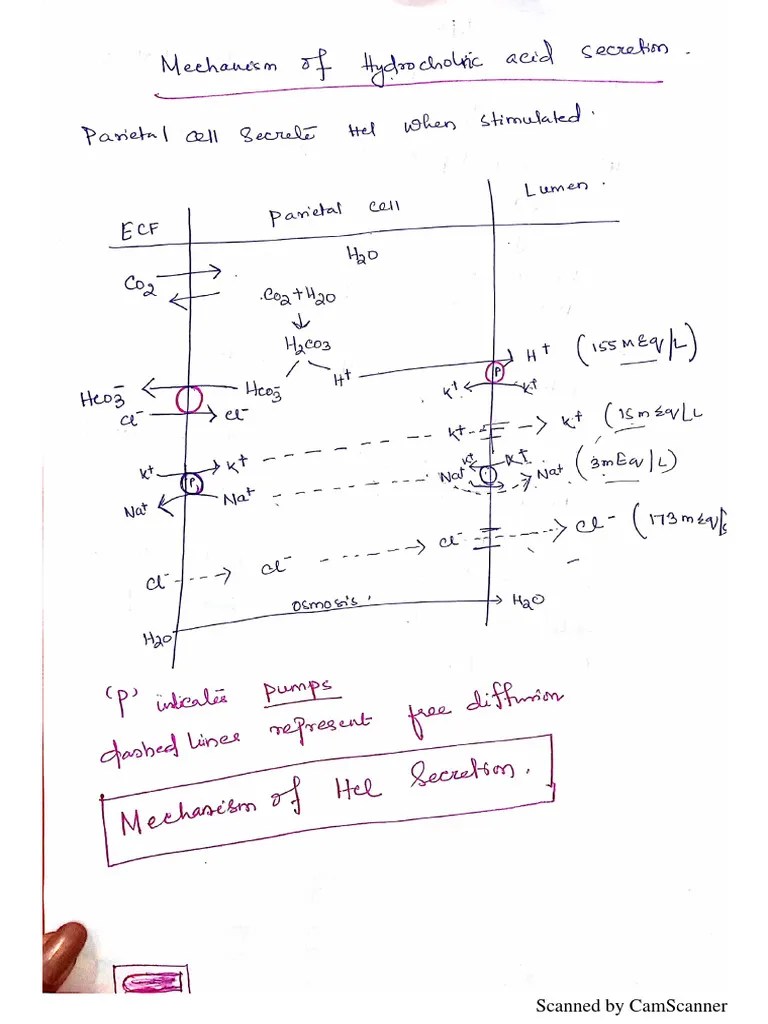 Mechanism of Hydrocholric acid secretion.
Parietal cell secrete Hcl when stimulated.
ECF Parietal cell Lumen.
H2O
CO2
CO2+H2O
H2CO3
H+ (155 mEq/L)
HCO3- HCO3- H+ P
K+ K+
Cl- Cl-
K+ K+ (15 mEq/L
K+ K+
P K+ K+
Na+ Na+ (3mEq/L)
Na+ Na+
Cl- (173 mEq/
Cl- Cl- Cl-
osmosis. H2O
H2O
'P' indicates pumps
dashed lines represent free diffusion
Mechanism of Hcl Secretion.
Scanned by CamScanner